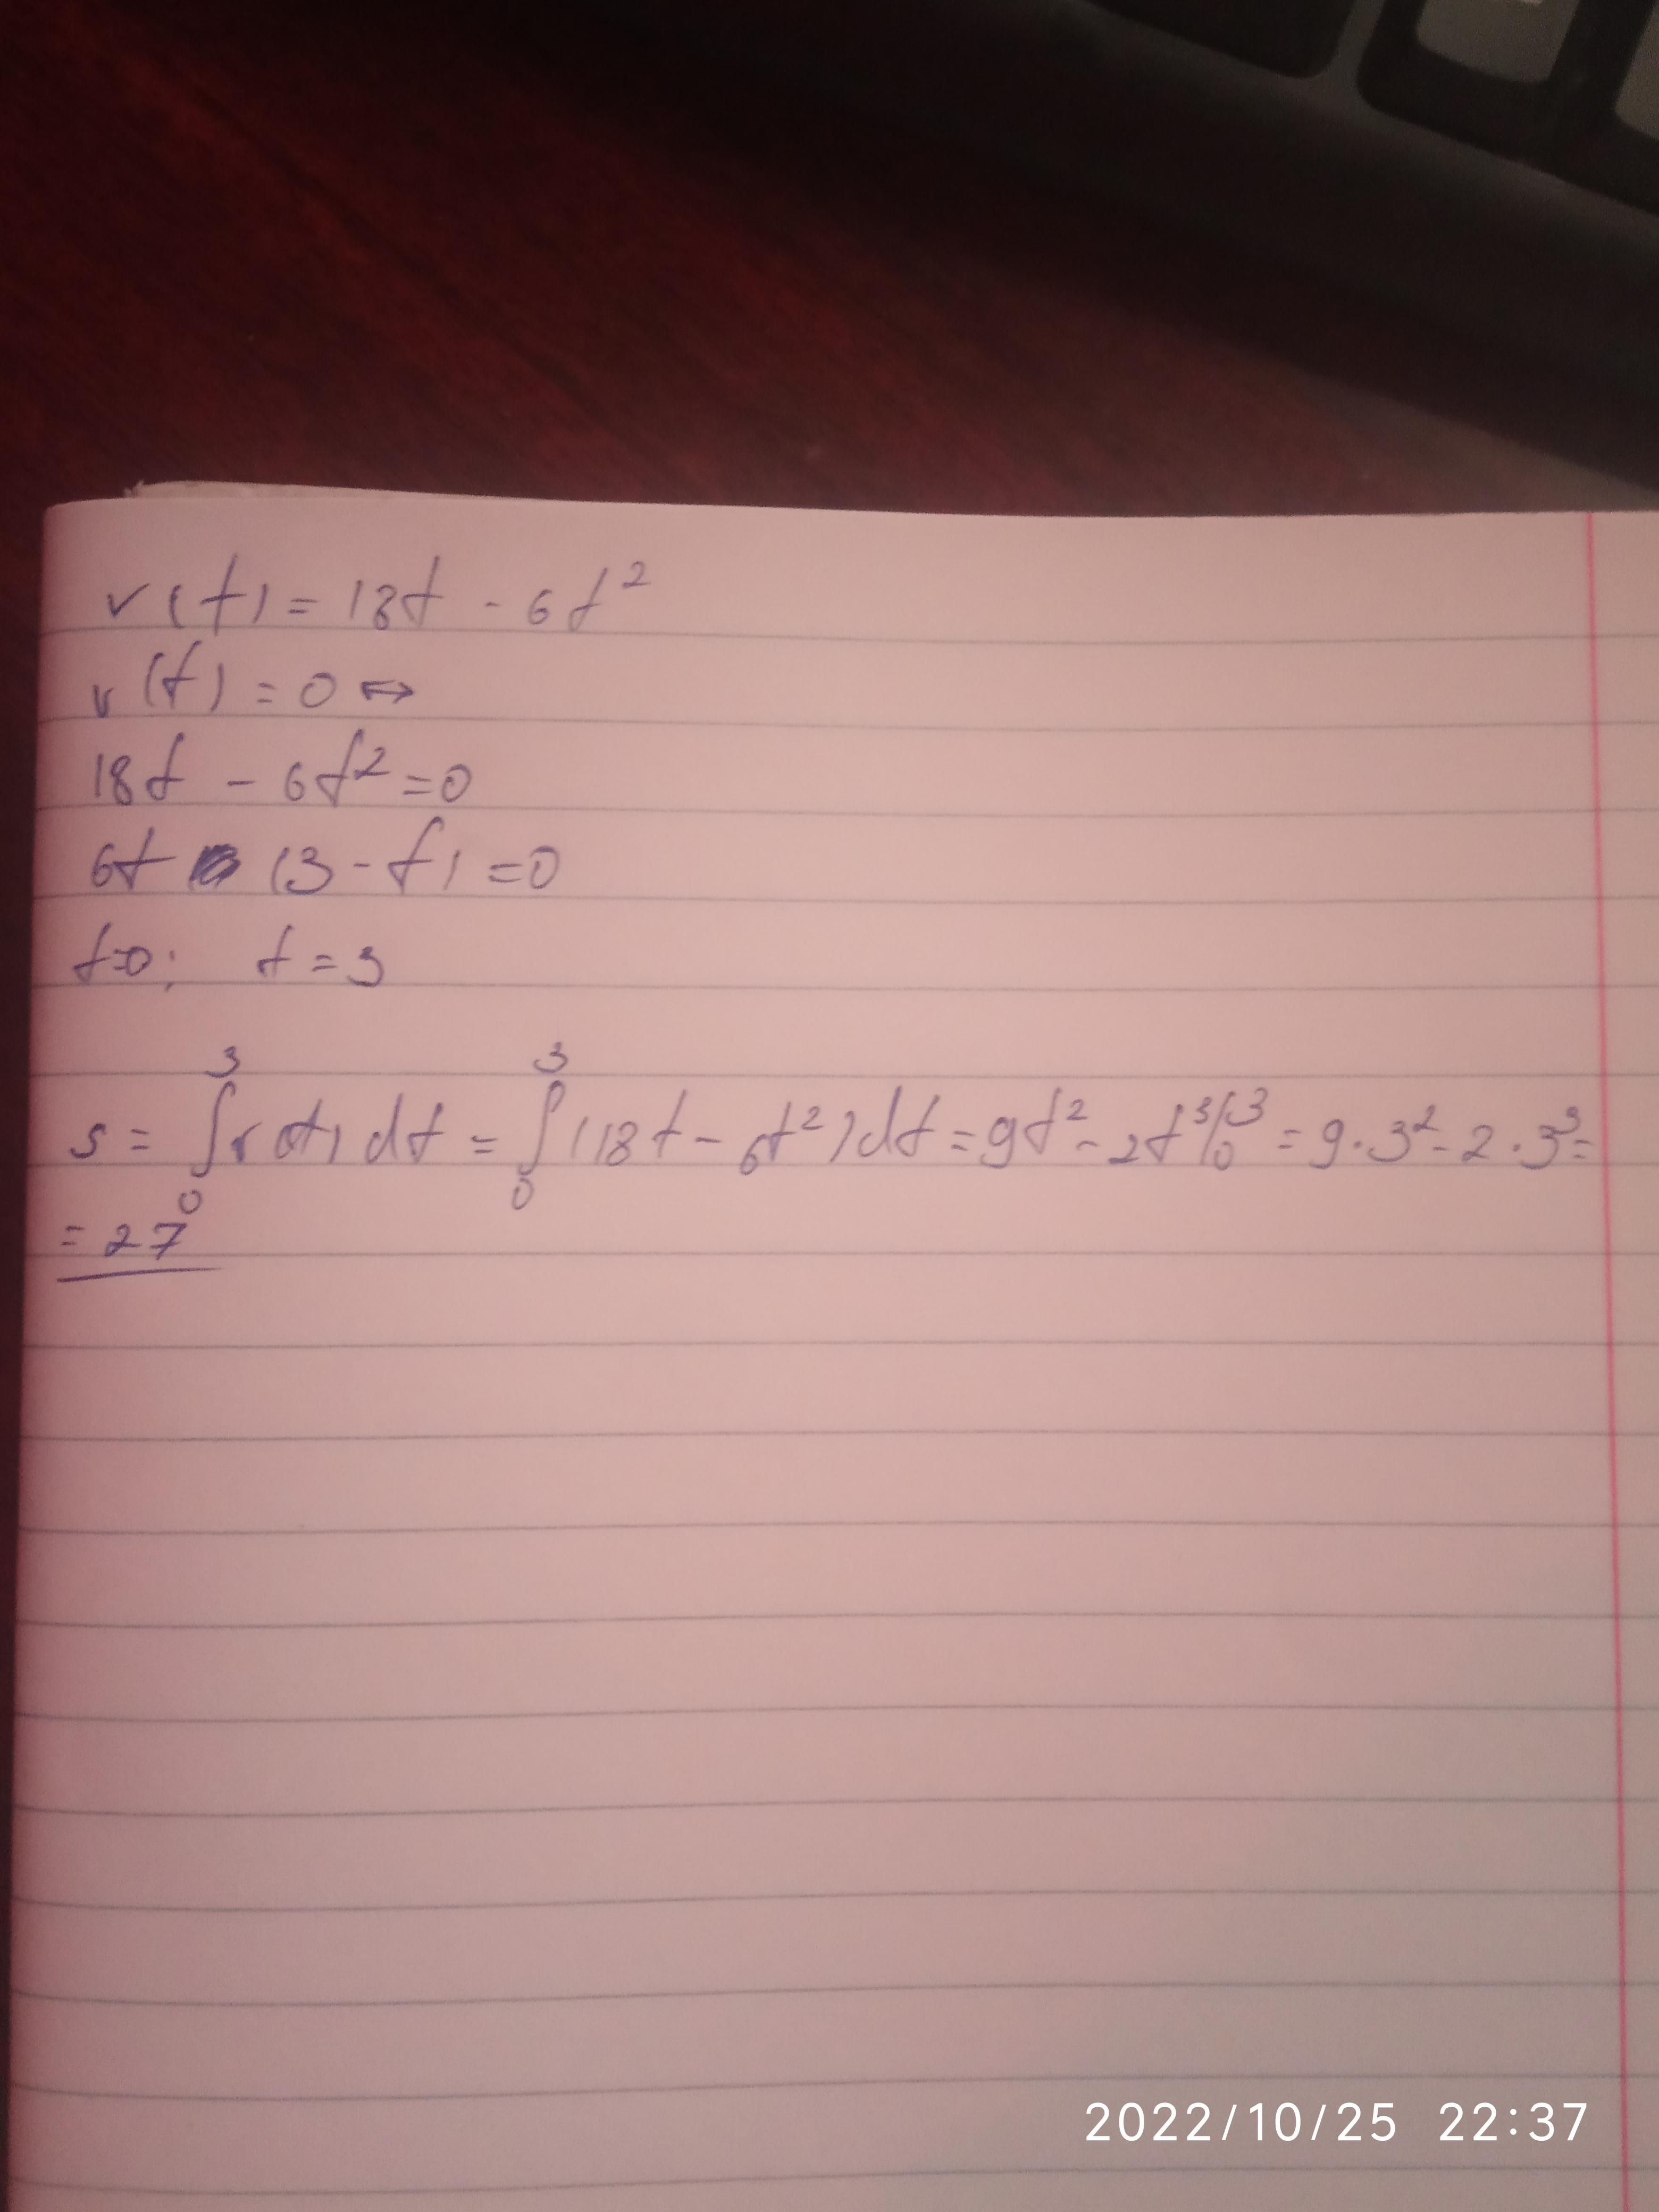 v(t) = 18t - 6t²
v(t) = 0 ↔
18t - 6t² = 0
6t (3 - t) = 0
t=0; t = 3
s = ∫₀³ v(t) dt = ∫₀³ (18t - 6t²) dt = 9t² - 2t³/₀³ = 9·3² - 2·3³ =
= 27
2022/10/25 22:37